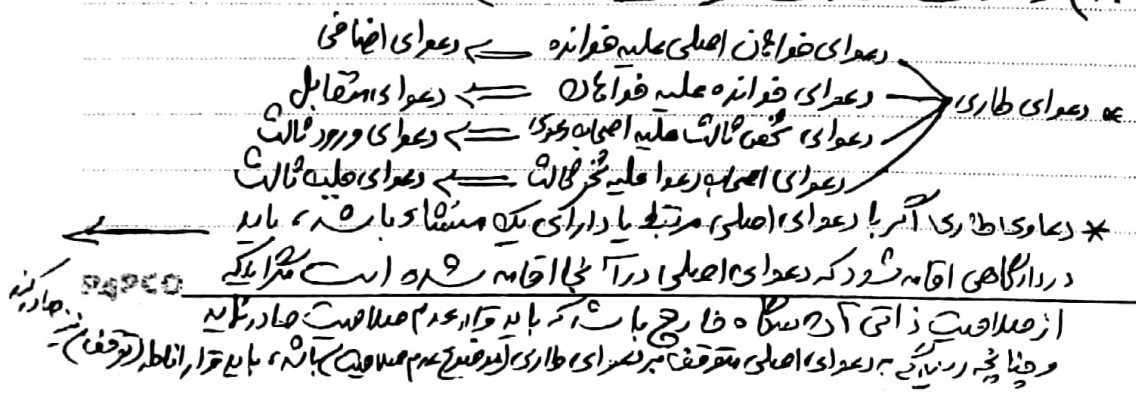 دعوای خواهان اصلی علیه خوانده ⇐ دعوای اضافی
* دعوای طاری
دعوای خوانده علیه خواهان ⇐ دعوای متقابل
دعوای شخص ثالث علیه اصحاب دعوی ⇐ دعوای ورود ثالث
دعوای اصحاب دعوا علیه شخص ثالث ⇐ دعوای جلب ثالث
* دعاوی طاری اگر با دعوای اصلی مرتبط یا دارای یک منشاء باشد، باید
در دادگاهی اقامه شود که دعوای اصلی در آنجا اقامه شده است مگر اینکه
PAPCO
از صلاحیت ذاتی آن دادگاه خارج باشد که باید قرار عدم صلاحیت صادر نماید
و چنانچه رسیدگی به دعوای اصلی متوقف بر دعوای طاری (موضوع عدم صلاحیت) باشد، باید قرار اناطه (توقف) نیز صادر کند